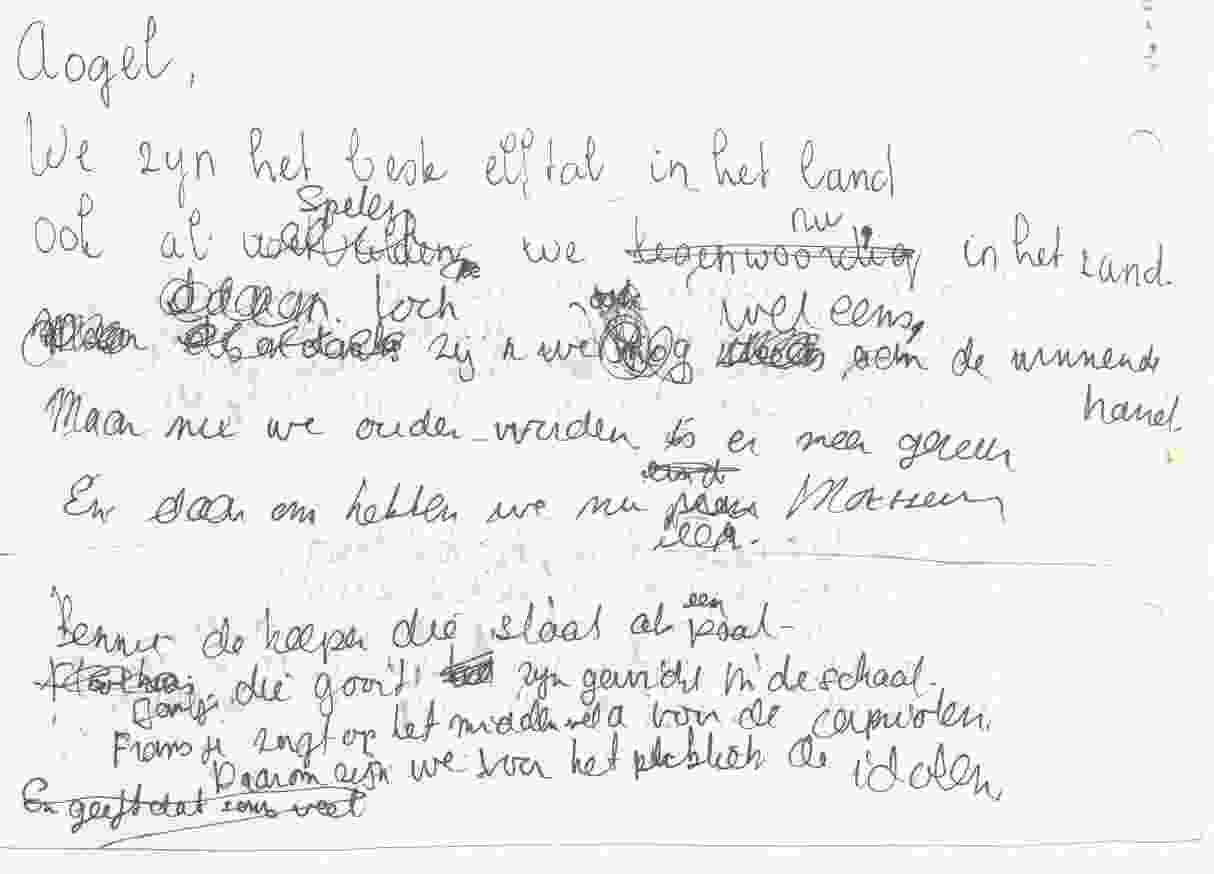 Aogel,
We zyn het beste elftal in het land
Spelen nu
Ook al we tegenwoordig in het zand.
daagn. toch wel eens,
zijn we de winnende
hand.
Maar nu we ouder worden is er meer
En daar om hebben we nu
een
een
Bennie de keeper die staat als paal-
die gooit zyn gewicht in de schaal.
Fransje zorgt op het middenveld voor de capriolen.
Daarom zijn we voor het publiek de idolen.
En geeft dat soms weet